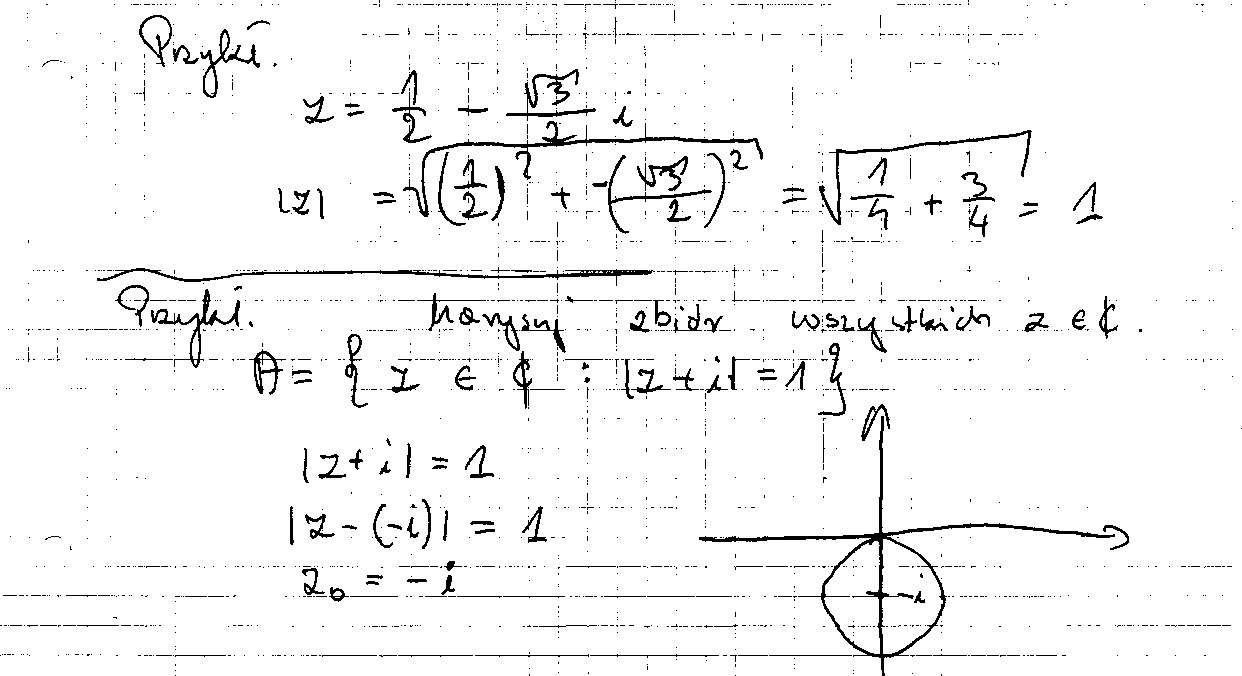 Przykł.
z = 1/2 - √3/2 i
|z| = √((1/2)² + -(√3/2)²) = √(1/4 + 3/4) = 1
Przykł. Narysuj zbiór wszystkich z ∈ ℂ.
A = { z ∈ ℂ : |z + i| = 1 }
|z + i| = 1
|z - (-i)| = 1
z₀ = - i
-i